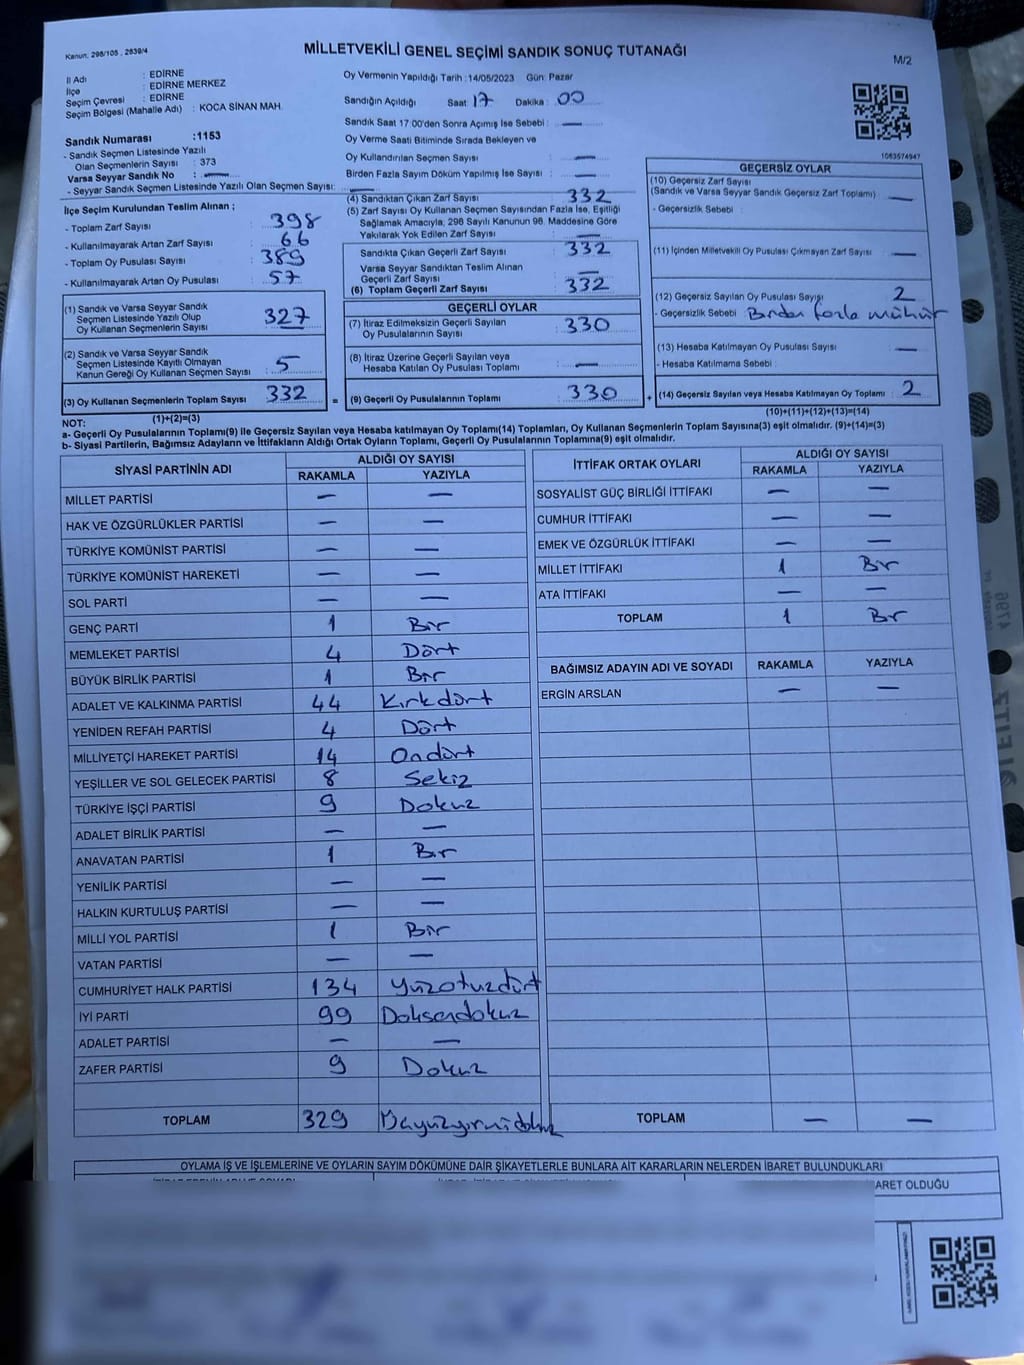 Kanun: 298/105 , 2839/4
MİLLETVEKİLİ GENEL SEÇİMİ SANDIK SONUÇ TUTANAĞI
M/2
İl Adı : EDİRNE
İlçe : EDİRNE MERKEZ
Seçim Çevresi : EDİRNE
Seçim Bölgesi (Mahalle Adı) : KOCA SİNAN MAH.
Oy Vermenin Yapıldığı Tarih : 14/05/2023 Gün: Pazar
Sandığın Açıldığı Saat 17 Dakika : 00
Sandık Saat 17 00'den Sonra Açımış İse Sebebi : —
Oy Verme Saati Bitiminde Sırada Bekleyen ve
Oy Kullandırılan Seçmen Sayısı —
Birden Fazla Sayım Döküm Yapılmış İse Sayısı : —
1063574947
Sandık Numarası :1153
- Sandık Seçmen Listesinde Yazılı
Olan Seçmenlerin Sayısı : 373
Varsa Seyyar Sandık No : —
- Seyyar Sandık Seçmen Listesinde Yazılı Olan Seçmen Sayısı: —
İlçe Seçim Kurulundan Teslim Alınan ;
- Toplam Zarf Sayısı : 398
- Kullanılmayarak Artan Zarf Sayısı : 66
- Toplam Oy Pusulası Sayısı : 389
- Kullanılmayarak Artan Oy Pusulası : 57
(1) Sandık ve Varsa Seyyar Sandık
Seçmen Listesinde Yazılı Olup
Oy Kullanan Seçmenlerin Sayısı : 327
(2) Sandık ve Varsa Seyyar Sandık
Seçmen Listesinde Kayıtlı Olmayan
Kanun Gereği Oy Kullanan Seçmen Sayısı : 5
(3) Oy Kullanan Seçmenlerin Toplam Sayısı : 332
(1)+(2)=(3)
(4) Sandıktan Çıkan Zarf Sayısı : 332
(5) Zarf Sayısı Oy Kullanan Seçmen Sayısından Fazla İse, Eşitliği
Sağlamak Amacıyla, 298 Sayılı Kanunun 98. Maddesine Göre
Yakılarak Yok Edilen Zarf Sayısı : —
Sandıkta Çıkan Geçerli Zarf Sayısı : 332
Varsa Seyyar Sandıktan Teslim Alınan
Geçerli Zarf Sayısı : —
(6) Toplam Geçerli Zarf Sayısı : 332
GEÇERLİ OYLAR
(7) İtiraz Edilmeksizin Geçerli Sayılan
Oy Pusulalarının Sayısı : 330
(8) İtiraz Üzerine Geçerli Sayılan veya
Hesaba Katılan Oy Pusulası Toplamı : —
= (9) Geçerli Oy Pusulalarının Toplamı : 330
GEÇERSİZ OYLAR
(10) Geçersiz Zarf Sayısı
(Sandık ve Varsa Seyyar Sandık Geçersiz Zarf Toplamı) : —
- Geçersizlik Sebebi :
(11) İçinden Milletvekili Oy Pusulası Çıkmayan Zarf Sayısı —
(12) Geçersiz Sayılan Oy Pusulası Sayısı : 2
- Geçersizlik Sebebi : Birden fazla mühür
(13) Hesaba Katılmayan Oy Pusulası Sayısı : —
- Hesaba Katılmama Sebebi :
+ (14) Geçersiz Sayılan veya Hesaba Katılmayan Oy Toplamı : 2
(10)+(11)+(12)+(13)=(14)
NOT:
a- Geçerli Oy Pusulalarının Toplamı(9) ile Geçersiz Sayılan veya Hesaba katılmayan Oy Toplamı(14) Toplamları, Oy Kullanan Seçmenlerin Toplam Sayısına(3) eşit olmalıdır. (9)+(14)=(3)
b- Siyasi Partilerin, Bağımsız Adayların ve İttifakların Aldığı Ortak Oyların Toplamı, Geçerli Oy Pusulalarının Toplamına(9) eşit olmalıdır.
SİYASİ PARTİNİN ADI ALDIĞI OY SAYISI
RAKAMLA YAZIYLA
MİLLET PARTİSİ — —
HAK VE ÖZGÜRLÜKLER PARTİSİ — —
TÜRKİYE KOMÜNİST PARTİSİ — —
TÜRKİYE KOMÜNİST HAREKETİ — —
SOL PARTİ — —
GENÇ PARTİ 1 Bir
MEMLEKET PARTİSİ 4 Dört
BÜYÜK BİRLİK PARTİSİ 1 Bir
ADALET VE KALKINMA PARTİSİ 44 Kırkdört
YENİDEN REFAH PARTİSİ 4 Dört
MİLLİYETÇİ HAREKET PARTİSİ 14 Ondört
YEŞİLLER VE SOL GELECEK PARTİSİ 8 Sekiz
TÜRKİYE İŞÇİ PARTİSİ 9 Dokuz
ADALET BİRLİK PARTİSİ — —
ANAVATAN PARTİSİ 1 Bir
YENİLİK PARTİSİ — —
HALKIN KURTULUŞ PARTİSİ — —
MİLLİ YOL PARTİSİ 1 Bir
VATAN PARTİSİ — —
CUMHURİYET HALK PARTİSİ 134 Yüzotuzdört
İYİ PARTİ 99 Doksandokuz
ADALET PARTİSİ — —
ZAFER PARTİSİ 9 Dokuz
TOPLAM 329 Üçyüzyirmidokuz
İTTİFAK ORTAK OYLARI ALDIĞI OY SAYISI
RAKAMLA YAZIYLA
SOSYALİST GÜÇ BİRLİĞİ İTTİFAKI — —
CUMHUR İTTİFAKI — —
EMEK VE ÖZGÜRLÜK İTTİFAKI — —
MİLLET İTTİFAKI 1 Bir
ATA İTTİFAKI — —
TOPLAM 1 Bir
BAĞIMSIZ ADAYIN ADI VE SOYADI RAKAMLA YAZIYLA
ERGİN ARSLAN — —
TOPLAM — —
OYLAMA İŞ VE İŞLEMLERİNE VE OYLARIN SAYIM DÖKÜMÜNE DAİR ŞİKAYETLERLE BUNLARA AİT KARARLARIN NELERDEN İBARET BULUNDUKLARI
BARET OLDUĞU